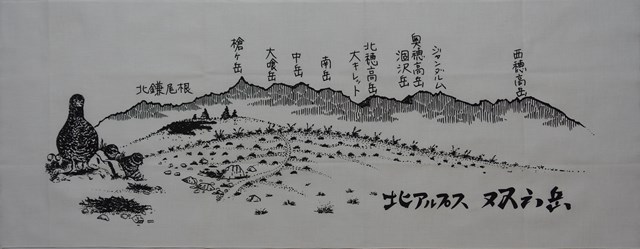 北鎌尾根
槍ヶ岳
大喰岳
中岳
南岳
大キレット
北穂高岳
涸沢岳
奥穂高岳
ジャンダルム
西穂高岳
北アルプス 双六岳